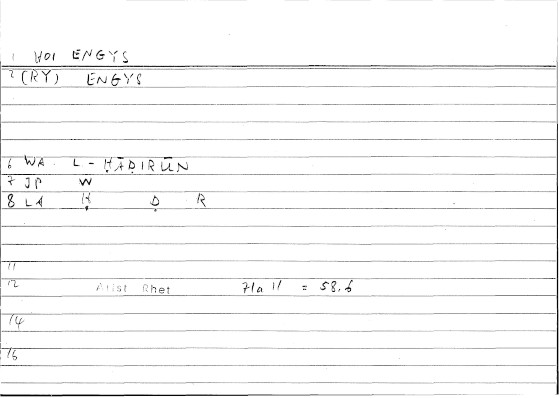 1 HOI ENGYS
2 (RY) ENGYS
6 WA L-ḤĀḌIRŪN
7 JP W
8 LA Ḥ Ḍ R
11
12 Arist Rhet 71a11 = 58.6
14
16